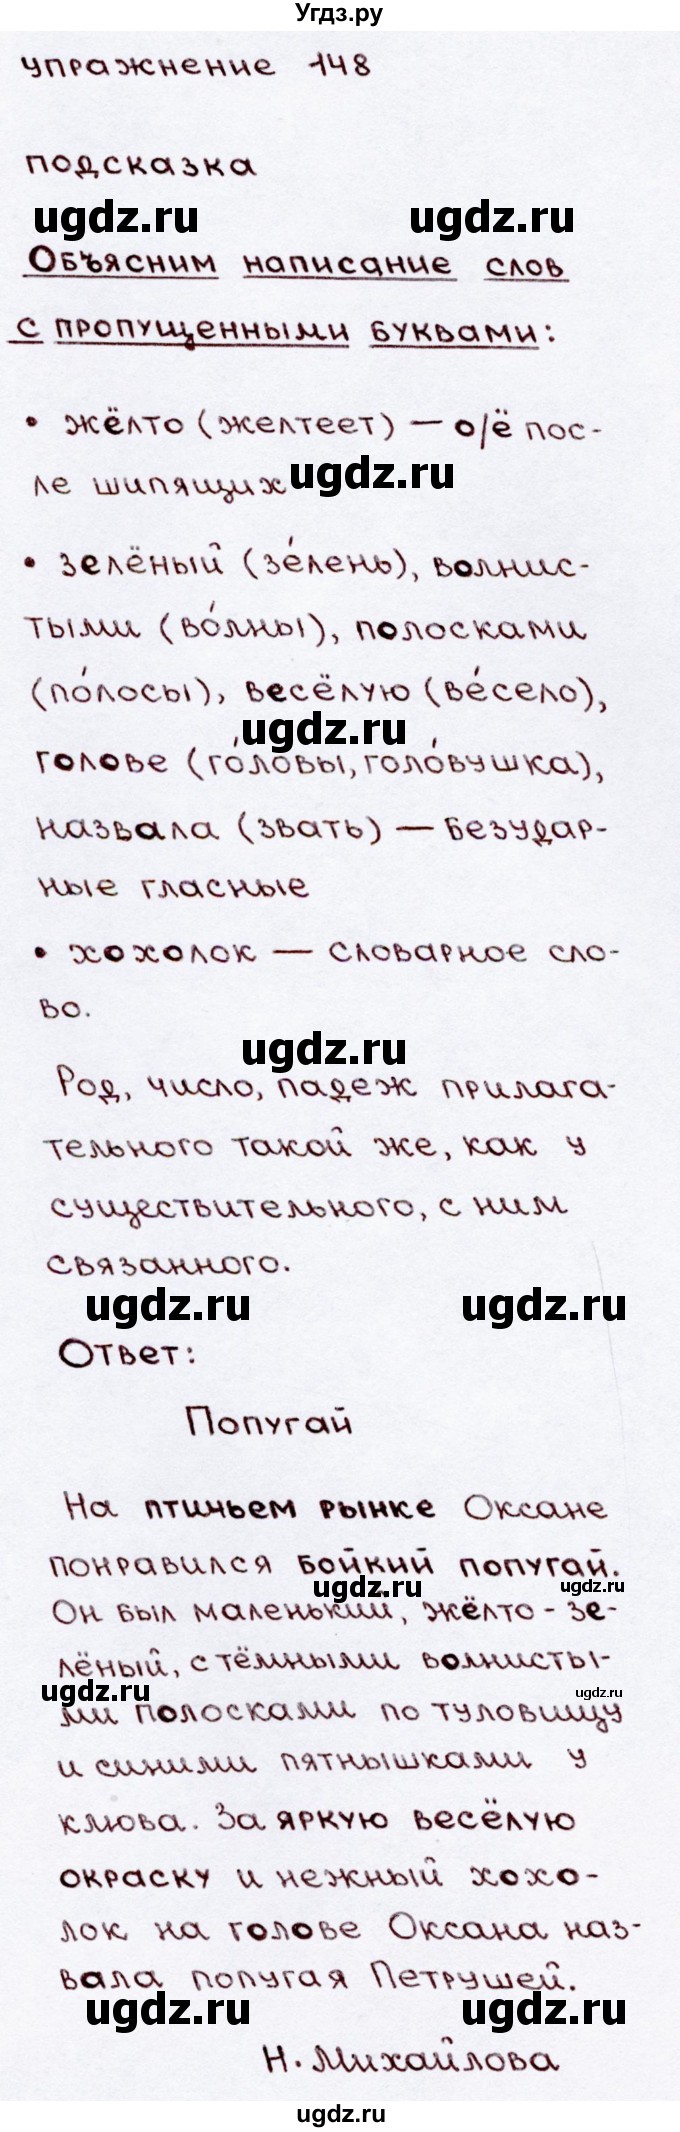 Угдз.ру
упражнение 148
подсказка
ugdz.ru ugdz.ru
Объясним написание слов
с пропущенными буквами:
• жёлто (желтеет) — о/ё пос-
ле шипящих
ugdz.ru
• зелёный (зе́лень), волнис-
тыми (во́лны), полосками
(по́лосы), весёлую (ве́село),
ugdz.ru
голове (го́ловы, голо́вушка),
назвала (звать) — безудар-
ные гласные
• хохолок — словарное сло-
во.
ugdz.ru
Род, число, падеж прилага-
тельного такой же, как у
существительного, с ним
связанного.
ugdz.ru ugdz.ru
Ответ:
Попугай
На птичьем рынке Оксане
понравился бойкий попугай.
ugdz.ru ugdz.ru
Он был маленький, жёлто-зе-
лёный, с тёмными волнисты-
ugdz.ru ugdz.ru
ми полосками по туловищу
и синими пятнышками у
клюва. За яркую весёлую
окраску и нежный хохо-
лок на голове Оксана наз-
вала попугая Петрушей.
ugdz.ru ugdz.ru
Н. Михайлова
ugdz.ru